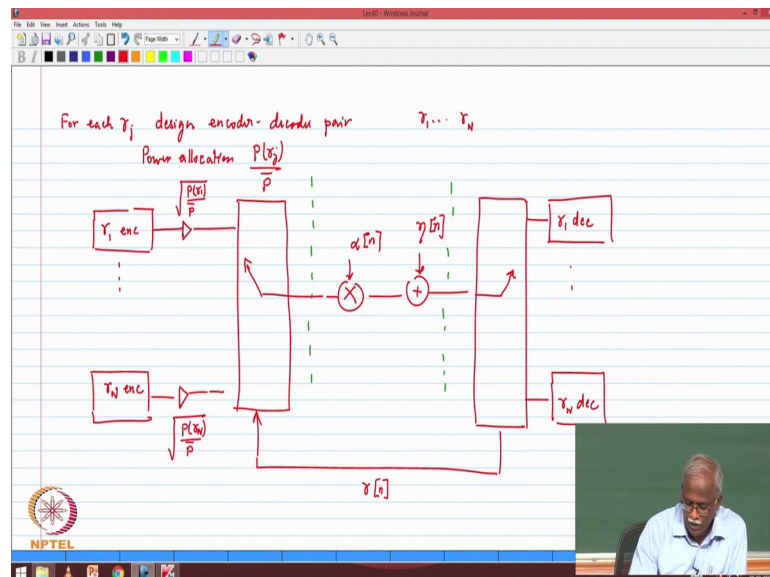 Lec40 - Windows Journal
File Edit View Insert Actions Tools Help
Page Width
B I
For each γj design encoder-decoder pair γ1 ... γN
Power allocation P(γj)
P̄
√P(γ1)
P̄
γ1 enc
α[n]
η[n]
γ1 dec
X
+
γN enc
γN dec
√P(γN)
P̄
γ[n]
NPTEL